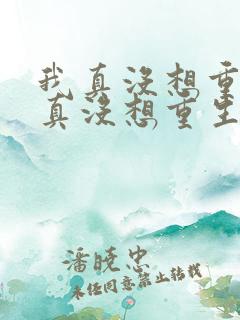 我真没想重
真没想重生
潘晓忠
未经同意禁止转载